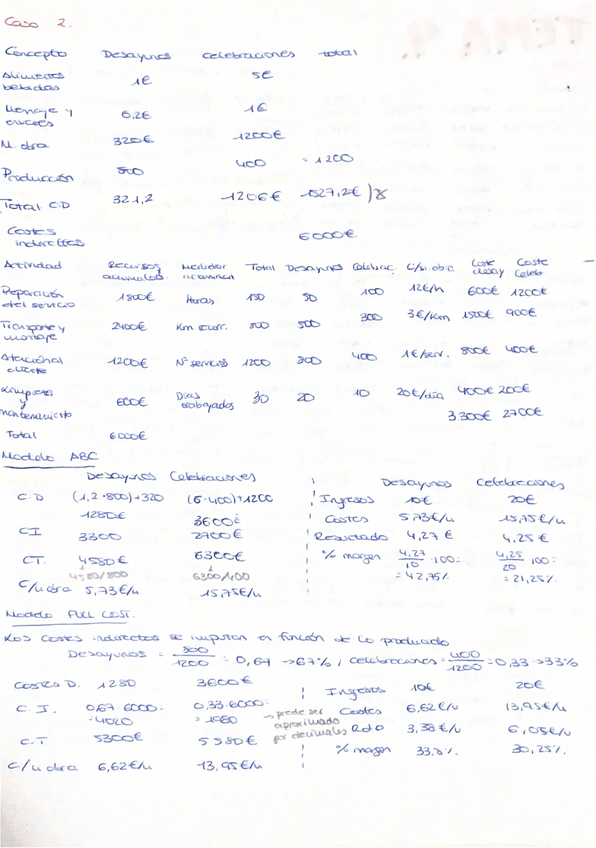 Caso 2.
Concepto Desayunos celebraciones total
Alimentos bebidas 1€ 5€
Menaje y enseres 0,2€ 1€
M. obra 320€ 1200€
Producción 800 400 = 1200
Total C.D 321,2 1206€ 1527,2€
Costes indirectos 6000€
Actividad Recursos acumulados. Medidor Total Desayunos Celebrac. C/u.obra. Coste desay Coste Celeb
Preparación del servicio 1800€ Horas 150 50 100 12€/h 600€ 1200€
Transporte y montaje 2400€ Km recorr. 800 500 300 3€/Km 1500€ 900€
Atención al cliente 1200€ Nº servicios 1200 800 400 1€/serv. 800€ 400€
Limpieza y mantenimiento 600€ Días trabajados 30 20 10 20€/día 400€ 200€
3.300€ 2700€
Total 6000€
Modelo ABC
Desayunos Celebraciones
C.D (1,2·800)+320 (6·400)+1200
1280€ 3600€
CI 3300 2700€
CT. 4580€ 6300€
4580/800 6300/400
C/u obra 5,73€/u 15,75€/u
Desayunos Celebraciones
Ingresos 10€ 20€
Costes 5,73€/u 15,75€/u
Resultado 4,27€ 4,25€
% margen 4,27/10 · 100 = 42,75% 4,25/20 · 100 = 21,25%
Modelo FULL COST.
Los costes indirectos se imputan en función de lo producido
Desayunos = 800/1200 = 0,67 → 67% ; celebraciones = 400/1200 = 0,33 → 33%
Costes D. 1280 3600€
C.I. 0,67·6000 = 4020 0,33·6000 = 1980
C.T 5300€ 5580€
C/u obra 6,62€/u 13,95€/u
→ puede ser aproximado por decimales
Ingresos 10€ 20€
Costes 6,62€/u 13,95€/u
Rdto 3,38€/u 6,05€/u
% margen 33,8% 30,25%